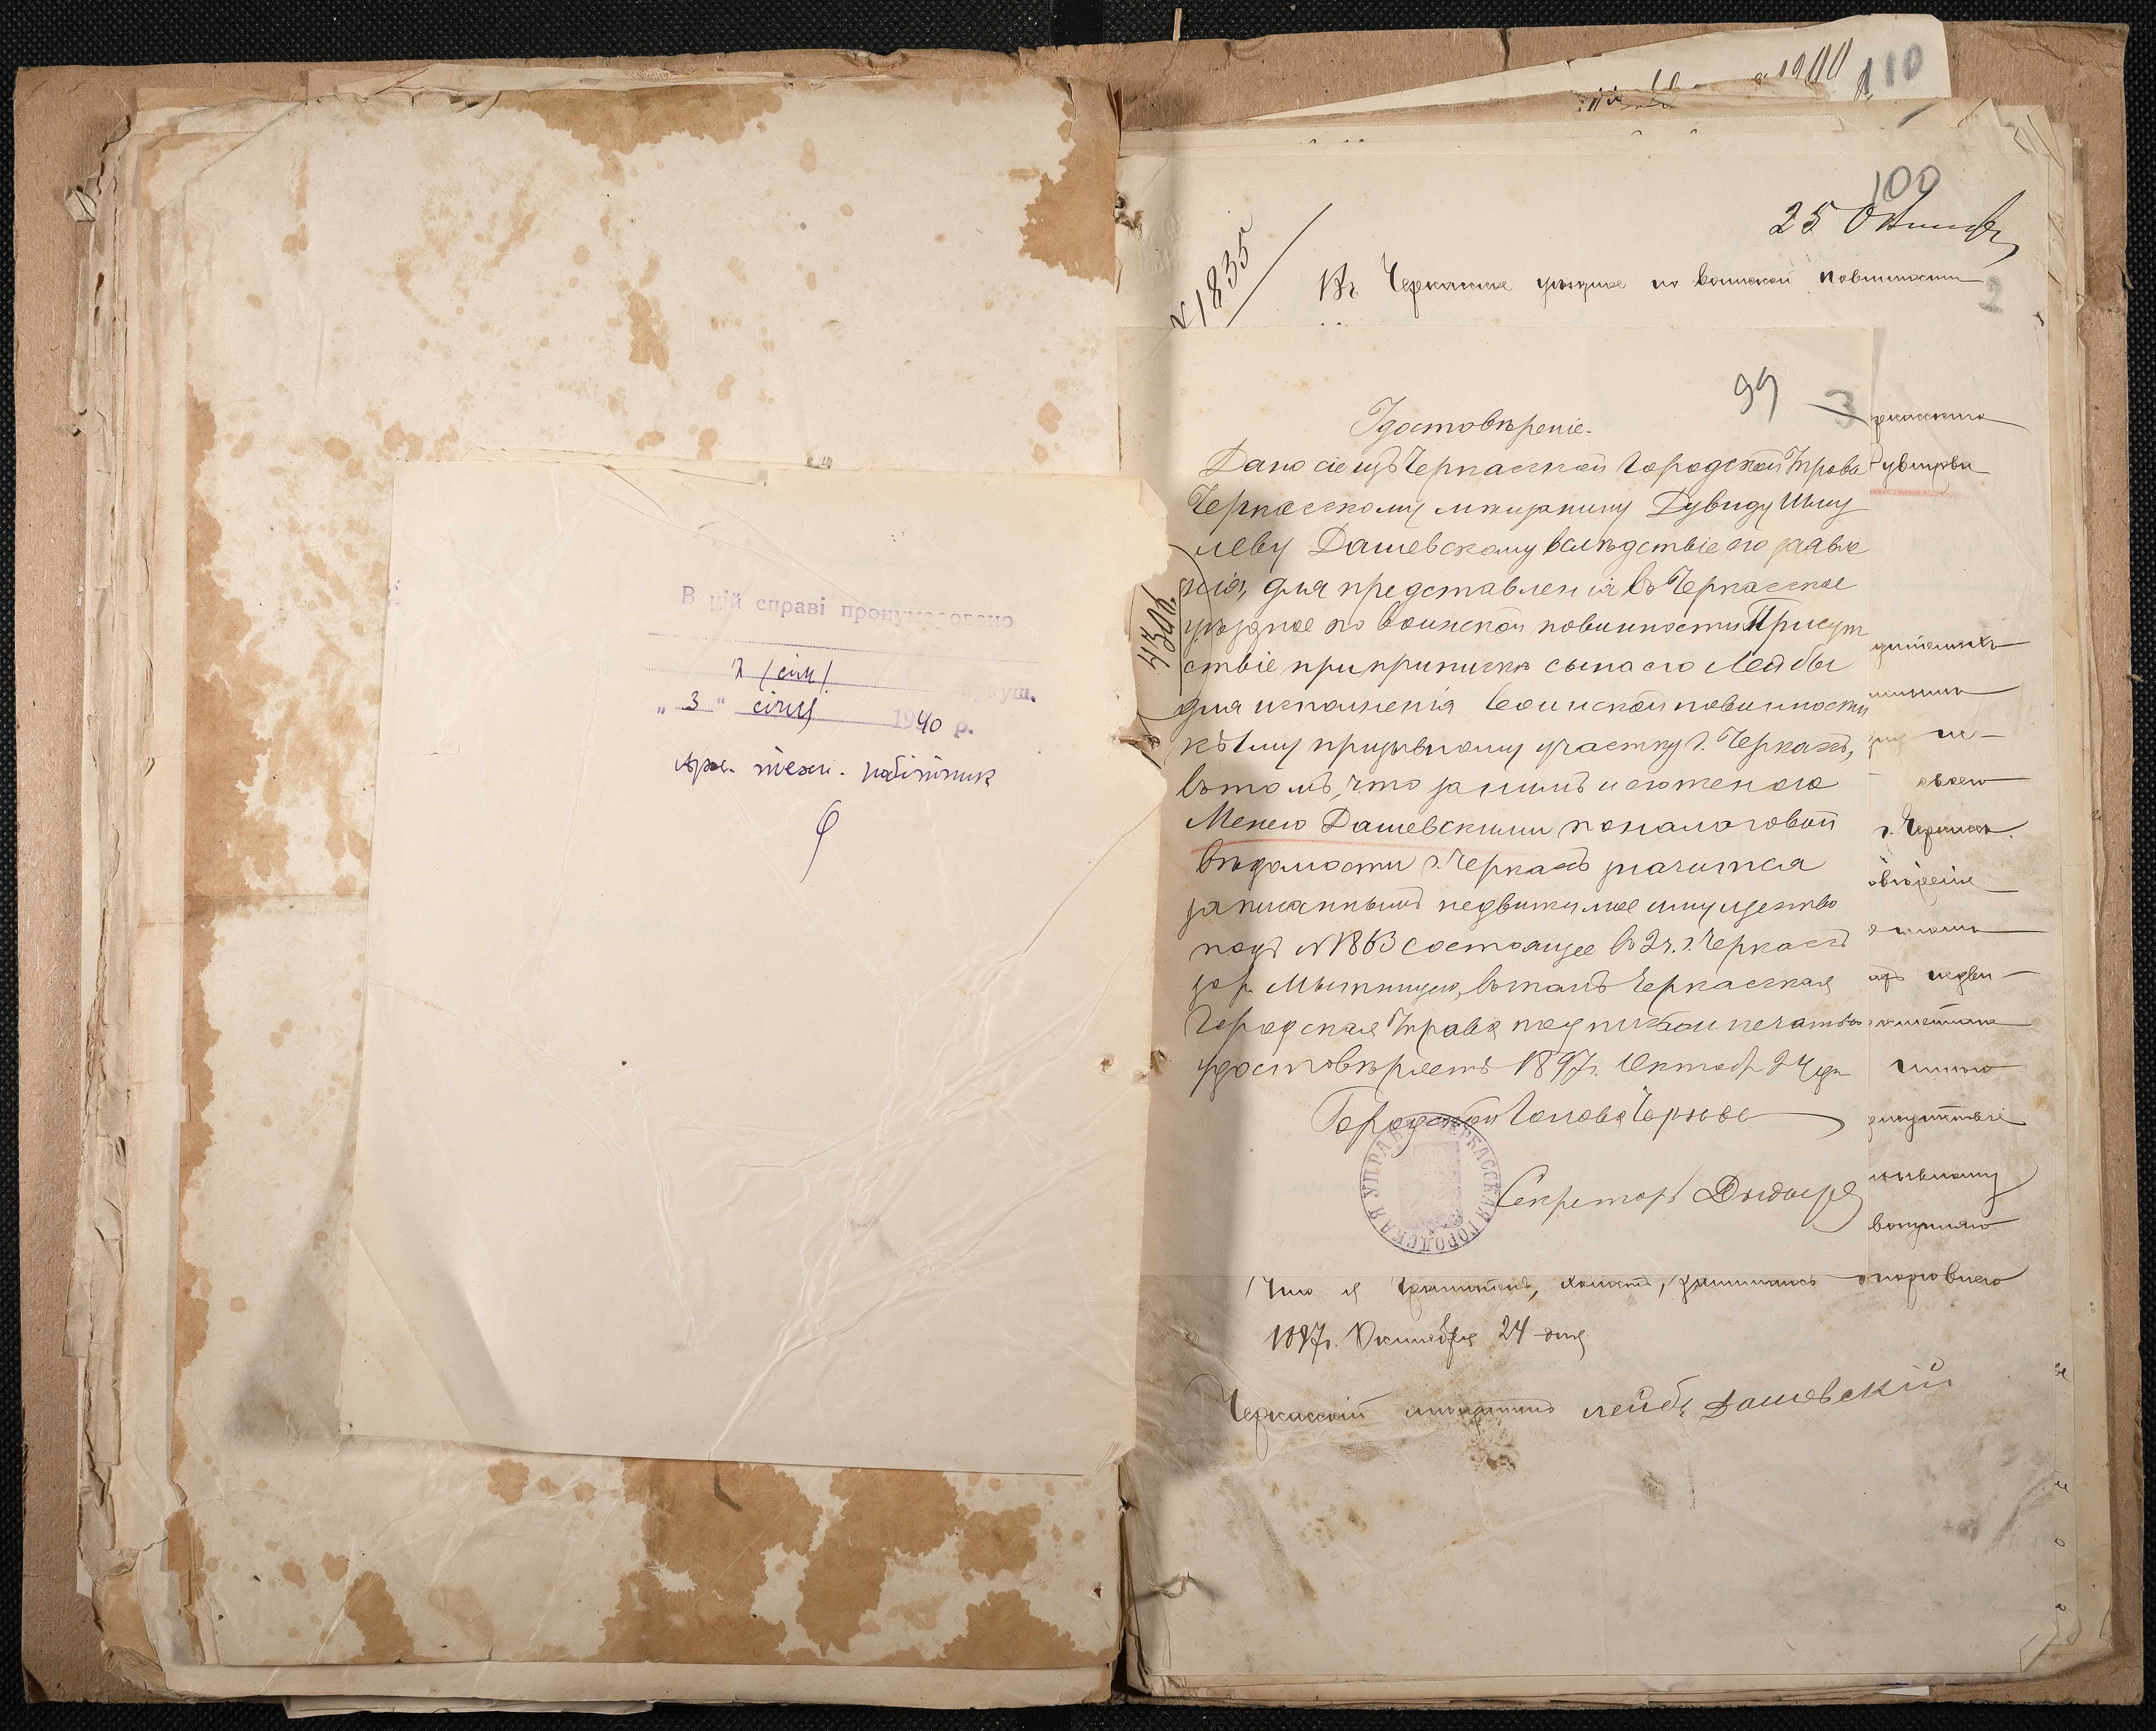 В цій справі пронумеровано
7 /сім/ аркуш.
„ 3 “ січня 1940 р.
арх. техн. робітник
110
100
25 Октября
№ 1835
Въ Черкасское уѣздное по воинской повинности
2
99
3
Удостовѣреніе.
4306
Дано сіе изъ Черкасской Городской Управы
Черкасскому мѣщанину Дувиду Шму
леву Дашевскому вслѣдствіе его заявле
нія, для представленія въ Черкасское
уѣздное по воинской повинности Присут
ствіе при припискѣ сына его Лейбы
для исполненія воинской повинности
къ 1му призывному участку г. Черкасъ,
въ томъ, что за нимъ и его женою
Менею Дашевскими по налоговой
вѣдомости г. Черкасъ значится
записаннымъ недвижимое имущество
подъ № 1863 состоящее въ 2 ч. г. Черкасъ
въ томъ Черкасская
Городская Управа подписомъ и печатью
удостовѣряетъ 1897 г. Октября 24 дня
Городской Голова
Секретарь
ЧЕРКАССКАЯ ГОРОДСКАЯ УПРАВА
г. Черкасъ.
Что я грамотенъ, холостъ, занимаюсь торговлею
1897 г. Октября 24 дня
Черкасскій мѣщанинъ Лейба Дашевскій